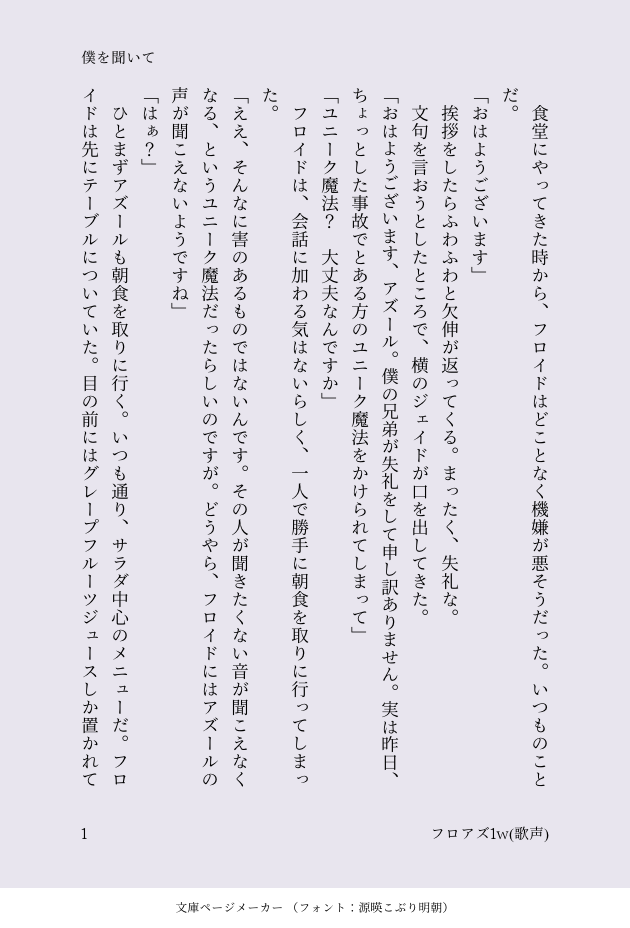 僕を聞いて
　食堂にやってきた時から、フロイドはどことなく機嫌が悪そうだった。いつものこと
だ。
「おはようございます」
　挨拶をしたらふわふわと欠伸が返ってくる。まったく、失礼な。
　文句を言おうとしたところで、横のジェイドが口を出してきた。
「おはようございます、アズール。僕の兄弟が失礼をして申し訳ありません。実は昨日、
ちょっとした事故でとある方のユニーク魔法をかけられてしまって」
「ユニーク魔法？　大丈夫なんですか」
　フロイドは、会話に加わる気はないらしく、一人で勝手に朝食を取りに行ってしまっ
た。
「ええ、そんなに害のあるものではないんです。その人が聞きたくない音が聞こえなく
なる、というユニーク魔法だったらしいのですが。どうやら、フロイドにはアズールの
声が聞こえないようですね」
「はぁ？」
　ひとまずアズールも朝食を取りに行く。いつも通り、サラダ中心のメニューだ。フロ
イドは先にテーブルについていた。目の前にはグレープフルーツジュースしか置かれて
1
フロアズ1w(歌声)
文庫ページメーカー （フォント：源暎こぶり明朝）